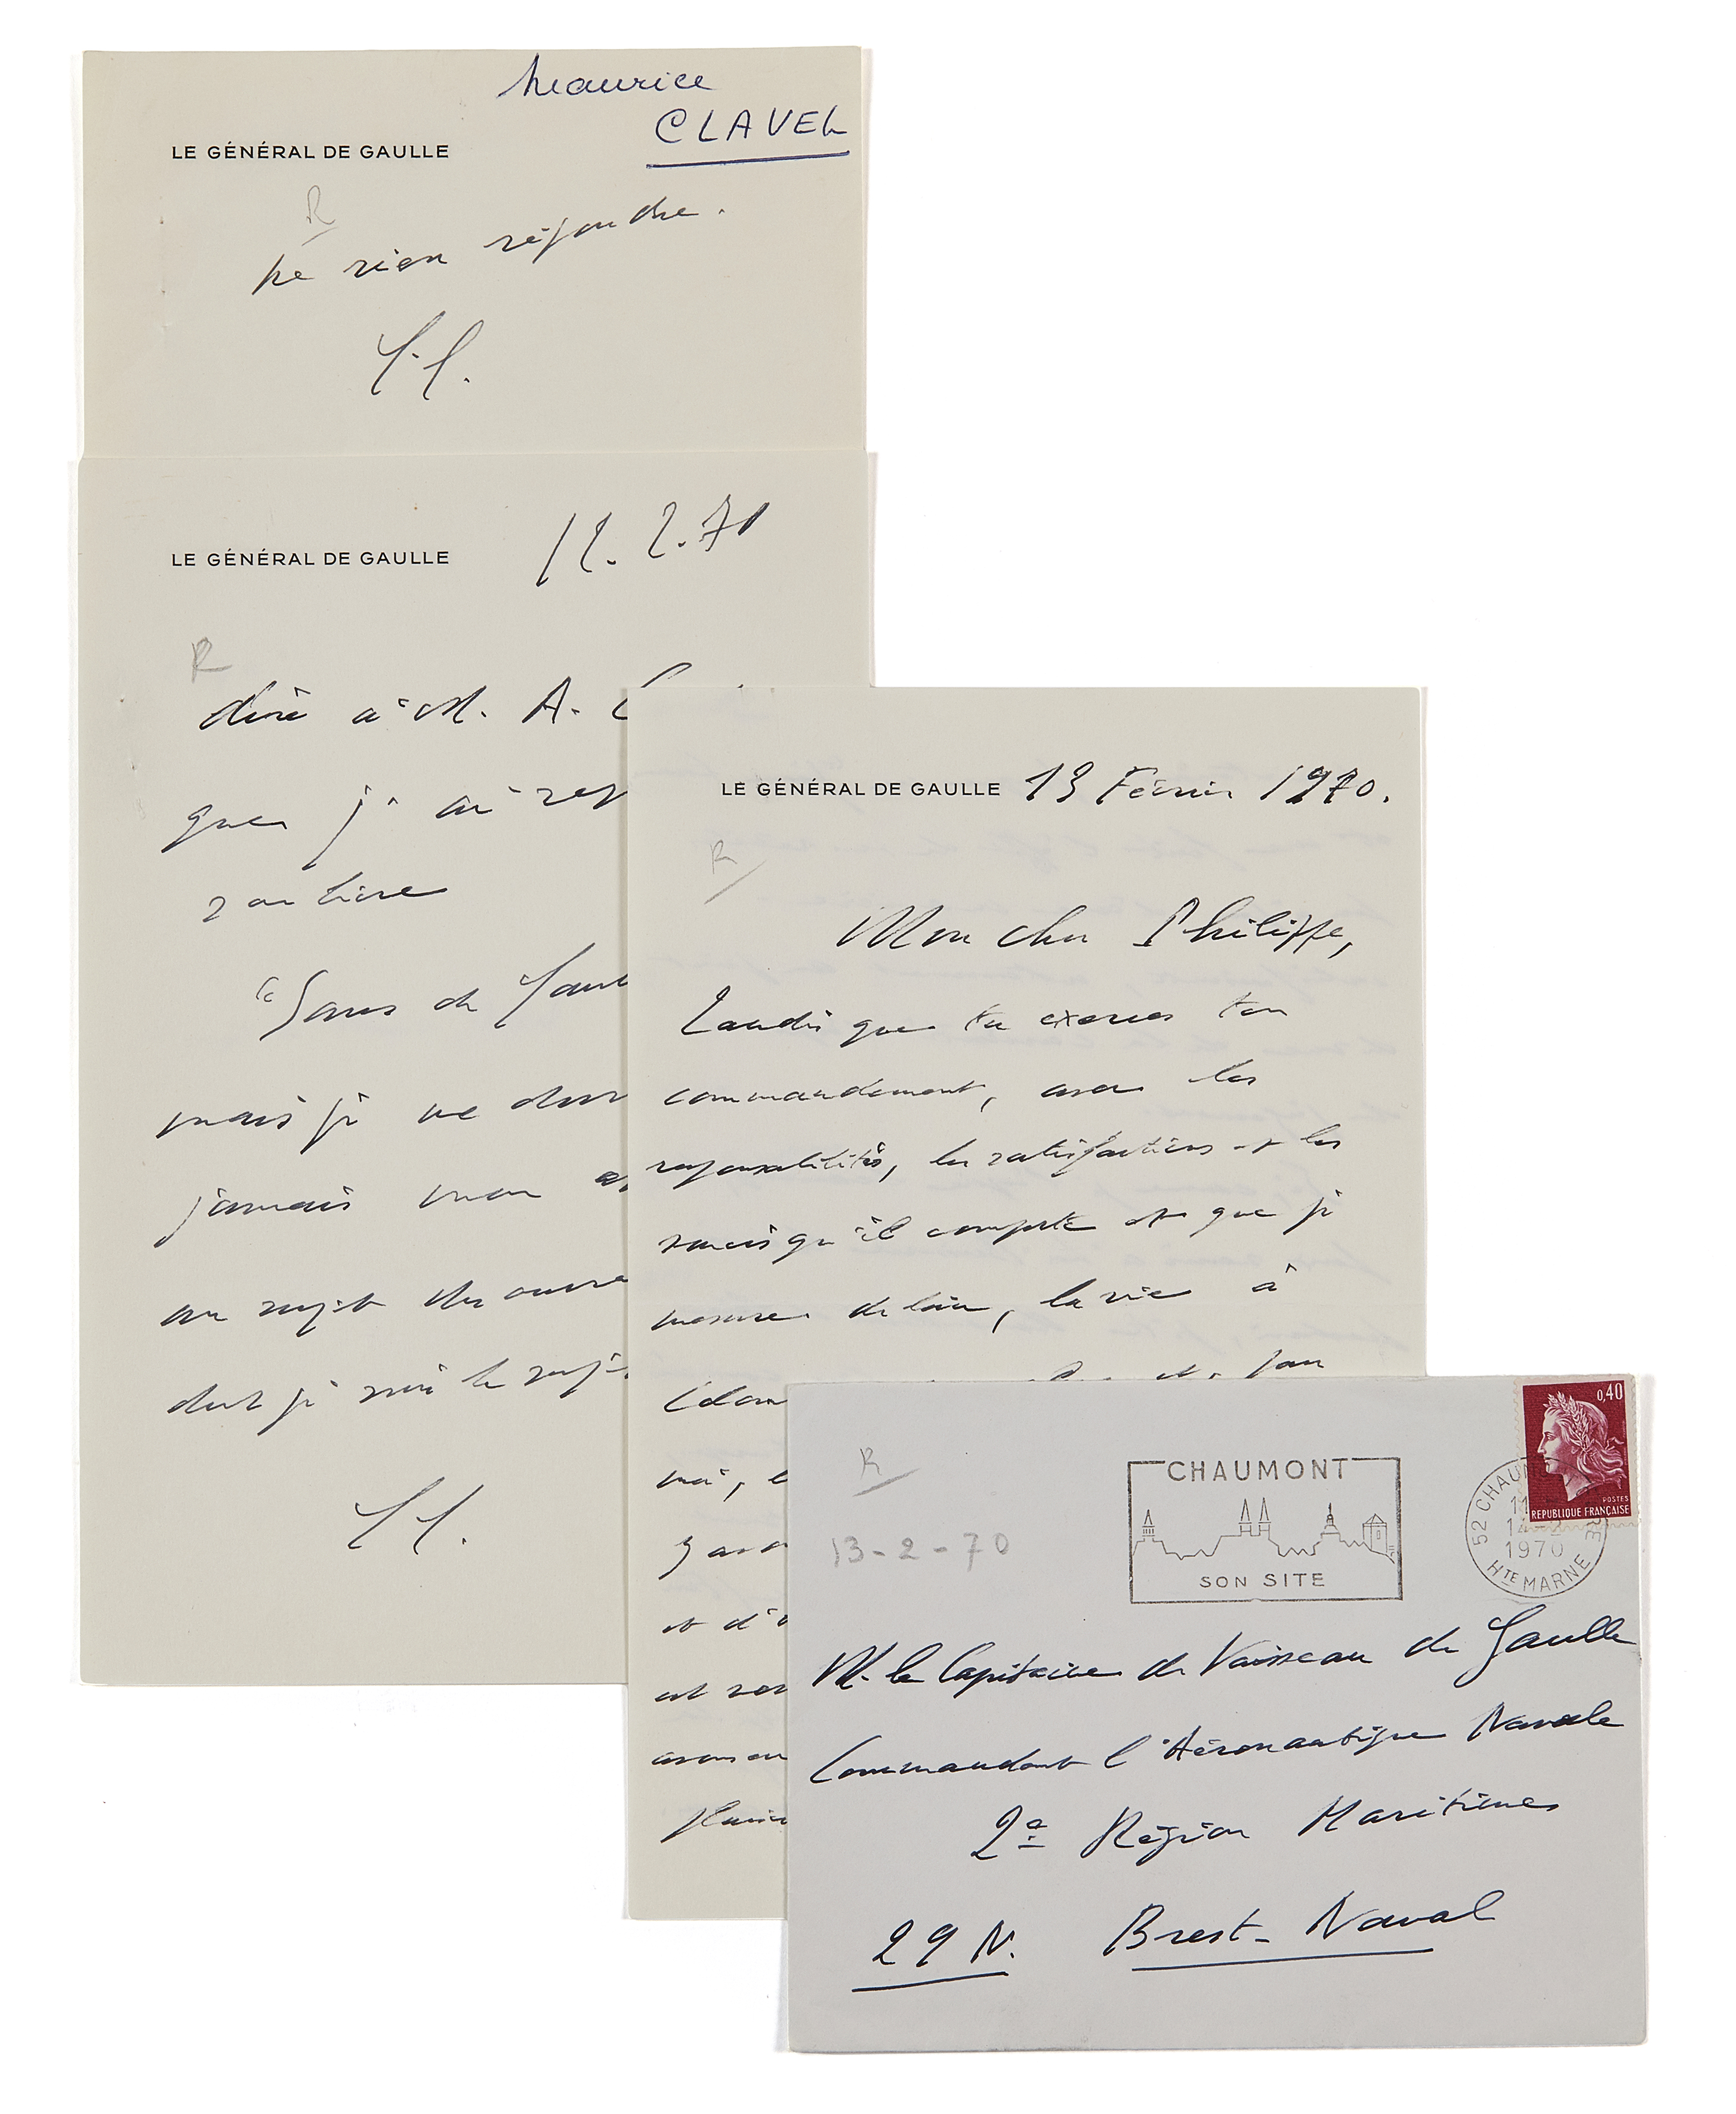 Maurice
CLAVEL
LE GÉNÉRAL DE GAULLE
R
Ne rien répondre.
LE GÉNÉRAL DE GAULLE
12.2.70
R
dire à M. A.
que j'ai
"Sans de Gaul
mais je ne
jamais mon
au sujet des ouvra
dont je suis le suje
LE GÉNÉRAL DE GAULLE 13 Février 1970.
R
Mon cher Philippe,
Tandis que tu exerces ton
commandement, avec les
responsabilités, les satisfactions et les
soucis qu'il comporte et que je
mesure de loin, la vie à
moi,
et d'
est
avons en
R
13-2-70
CHAUMONT
SON SITE
0,40
POSTES
REPUBLIQUE FRANÇAISE
52 CHAU
1970
HTE MARNE
M. le Capitaine de Vaisseau de Gaulle
Commandant l'Aéronautique Navale
2e Région Maritime
29 N. Brest-Naval